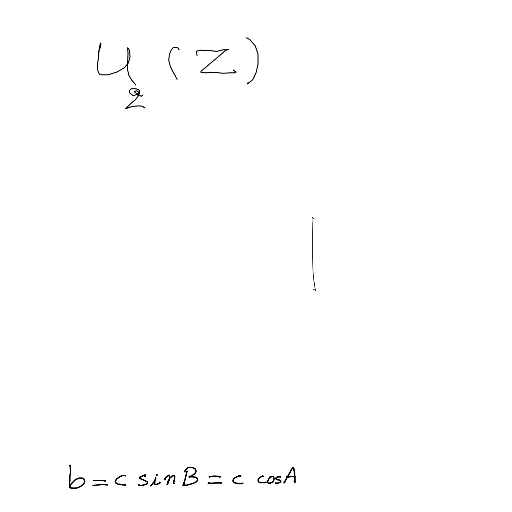 u₂(z)
|
b = c sinB = c cosA